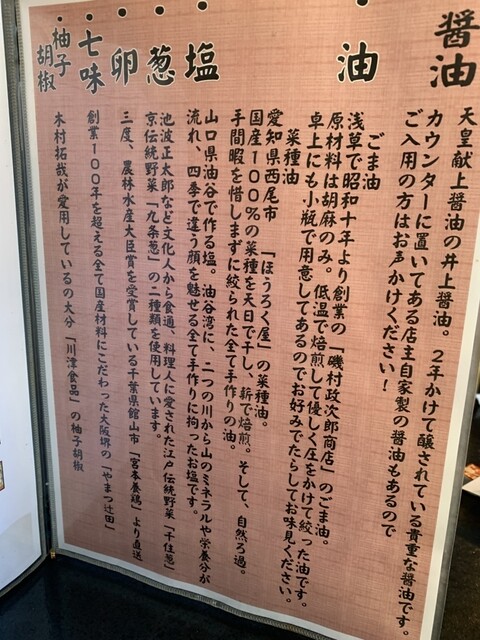 醤油
天皇献上醤油の井上醤油。2年かけて醸されている貴重な醤油です。
カウンターに置いてある店主自家製の醤油もあるので
ご入用の方はお声かけください！
油
ごま油
浅草で昭和十年より創業の「磯村政次郎商店」のごま油。
原材料は胡麻のみ。低温で焙煎して優しく圧をかけて絞った油です。
卓上にも小瓶で用意してあるのでお好みでたらしてお味見ください。
菜種油
愛知県西尾市「ほうろく屋」の菜種油。
国産100%の菜種を天日で干し、薪で焙煎。そして、自然ろ過。
手間暇を惜しまずに絞られた全て手作りの油。
塩
山口県油谷で作る塩。油谷湾に、二つの川から山のミネラルや栄養分が
流れ、四季で違う顔を魅せる全て手作りに拘ったお塩です。
葱
池波正太郎など文化人から食通、料理人に愛された江戸伝統野菜「千住葱」
京伝統野菜「九条葱」の二種類を使用しています。
卵
三度、農林水産大臣賞を受賞している千葉県館山市「宮本養鶏」より直送
七味
創業100年を超える全て国産材料にこだわった大阪堺の「やまつ辻田」
柚子胡椒
木村拓哉が愛用しているの大分「川津食品」の柚子胡椒